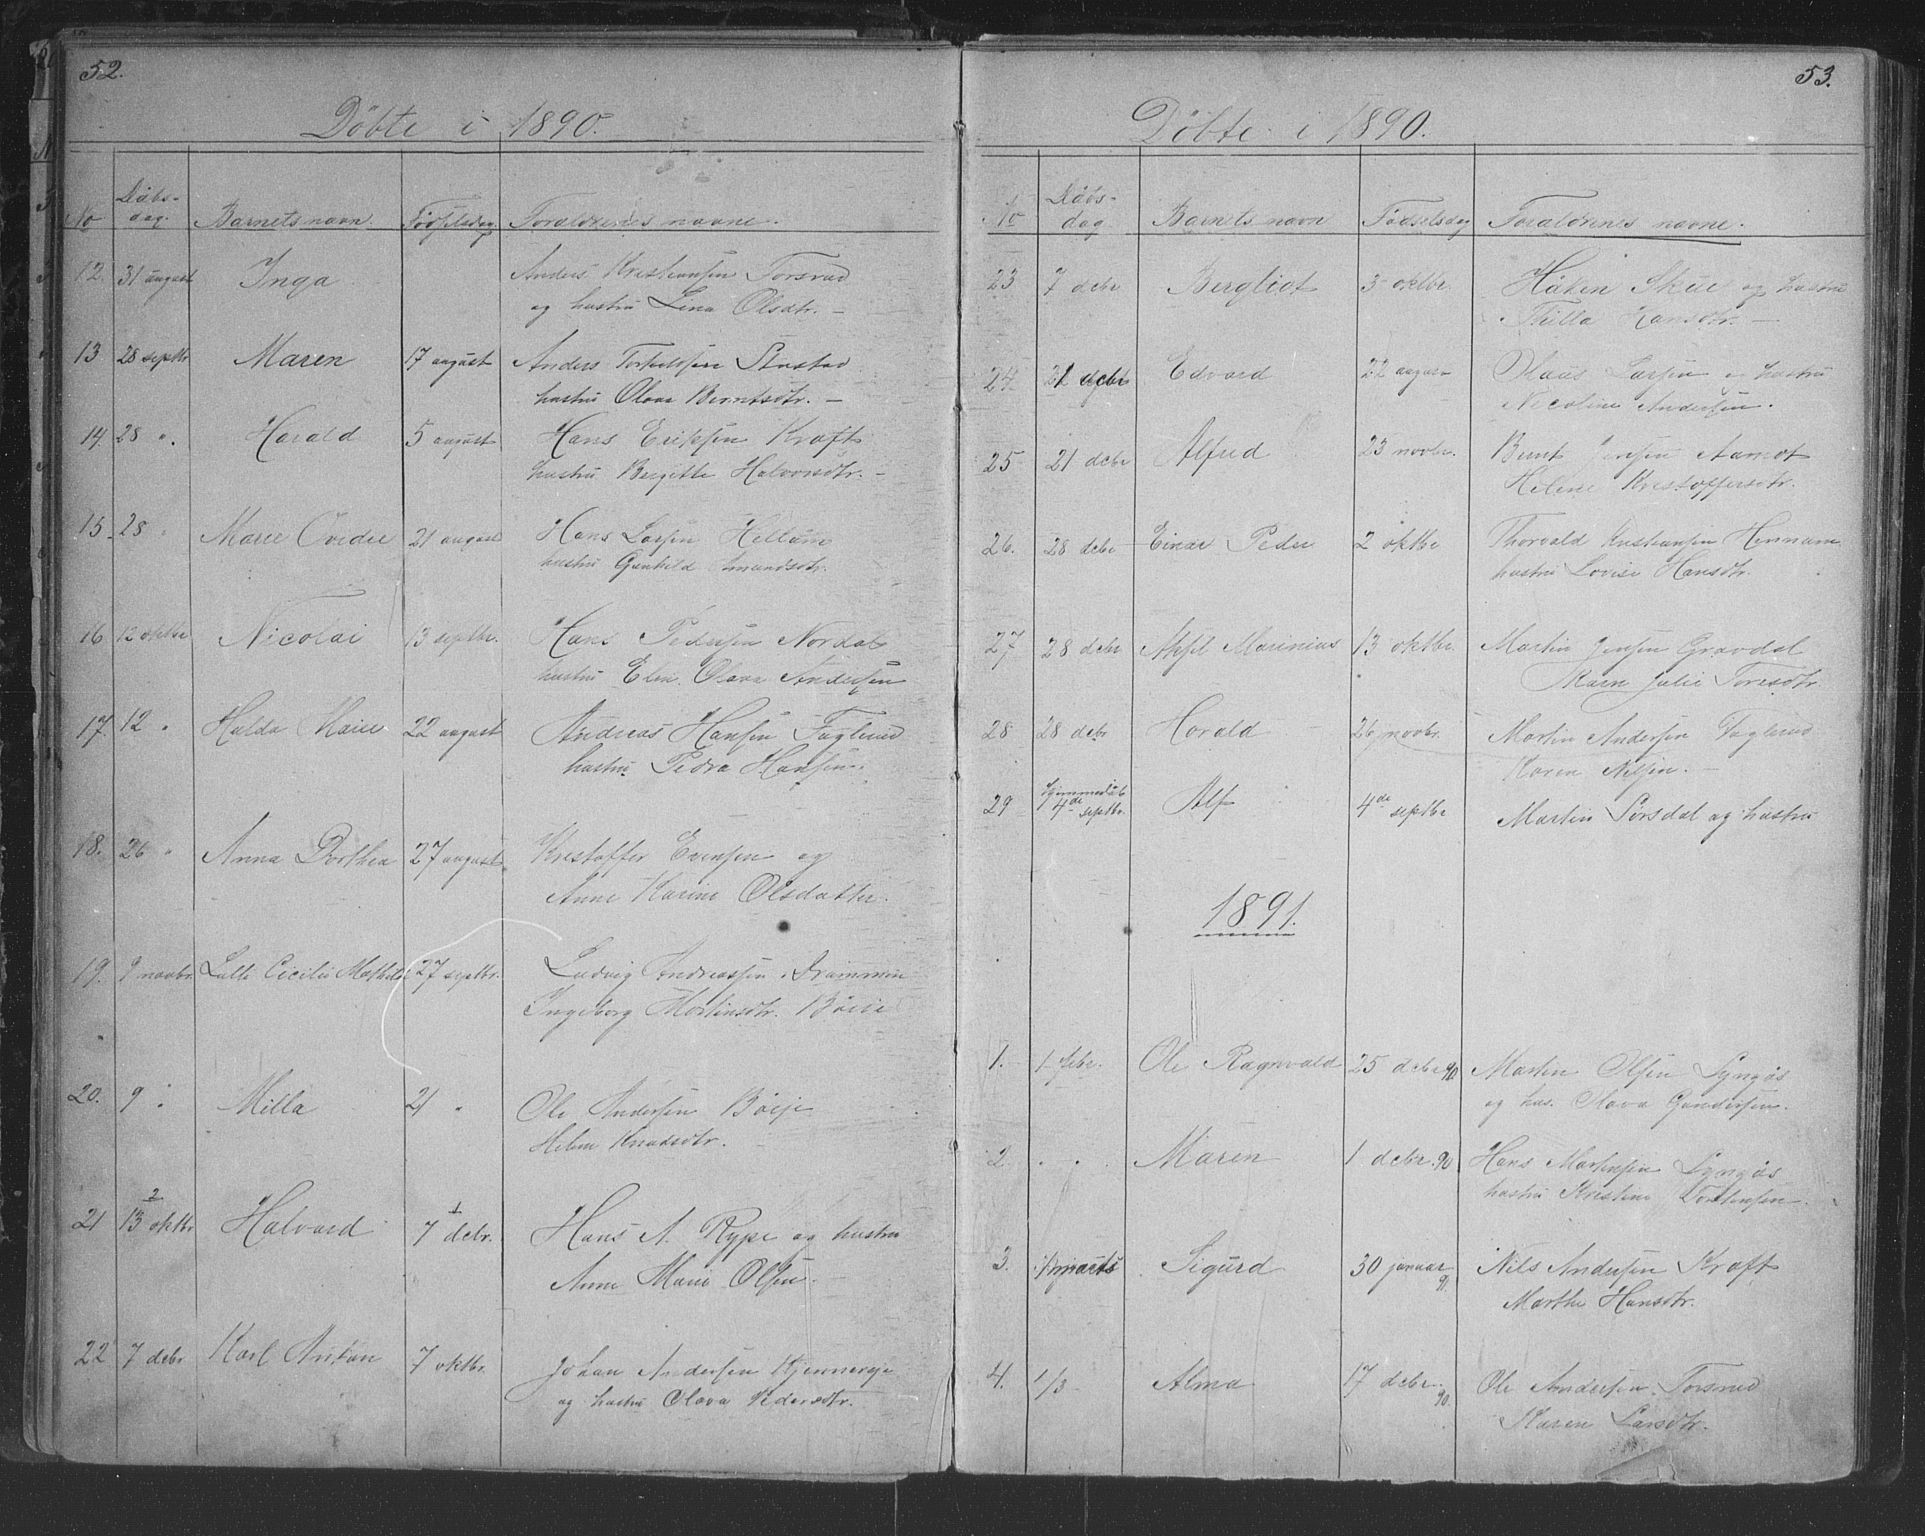 52.
Döbte i 1890.
No Döbs-
dag. Barnets navn. Födselsdag Foraldrenes navne.
12. 31 august Inga Anders Kristiansen Torsrud
og hustru Lina Olsdtr. –
13 28 septbr Maren 17 august Anders Torkelsen
hustru Olava Berntsdtr. –
14. 28 „ Harald 5 august Hans Eriksen Kraft
hustru Bergitte Halvorsdtr. –
15. 28 „ Marie Ovedie 21 august Hans Larsen Hellum
hustru Gunhild Amundsdtr.
16 12 oktbr Nicolai 13 septbr. Hans Pedersen Nordal
hustru Elen Olava Andersen
17. 12 „ Hulda Marie 22 august Andreas Hansen Faglerud
hustru Pedra Hansen.
18. 26 „ Anna Dorthea 27 august Kristoffer Evensen og
Anne Karine Olsdatter.
19. 9 novbr. Lalla Cecilie Mathilde 27 septbr. Ludvig Andreassen Drammen
Ingeborg Martinsdtr. Böije
20. 9 „ Milla 21 „ Ole Andersen Böije
Helene Knudsdtr.
21 13 oktbr Halvard 7 debr. Hans A. Rype og hustru
Anne Marie Olsen.
22 7 debr Karl Anton 7 oktbr. Johan Andersen Kjennerøje
og hustru Olava Pedersdtr.
53.
Döbte i 1890.
No Döbs-
dag Barnets navn Födselsdag Foraldrenes navne.
23 7 debr Bergliot 3 oktbr. Håken Skue og hustru
Thilla Hansdtr. –
24 21 debr Edvard 22 august Olaus Larsen o hustru
Nicoline Andersen.
25 21 debr Alfred 23 novbr. Bernt Jensen Aamot
Helene Kristoffersdtr.
26. 28 debr Einar Peder 2 oktbr Thorvald Kristiansen Hennum
hustru Lovise Hansdtr.
27 28 debr Aksel Marinius 13 oktbr. Martin Jensen Gravdal
Karen Julie Toresdtr
28 28 debr Harald 26 novbr. Martin Andersen Faglerud
Karen Nilsen. –
29 Hjemmedöbt
4de septbr. Alf 4de septbr Martin Sørsdal og hustru
1891.
1. 1 febr. Ole Ragnvald 25 debr 90 Martin Olsen Lyngås
og hus. Olava Gundersen.
2. „ „ Maren 1 debr. 90 Hans Martinsen Lyngås
hustru Kristine Torstensen.
3. 1 marts Sigurd 30 januar 91 Nils Andersen Kraft
Marthe Hansdtr.
4. 1/3 Alma 17 debr. 90. Ole Andersen Torsrud
Karen Larsdtr.